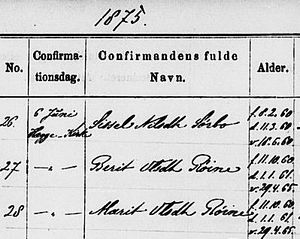 1875.
No.
Confirma-
tionsdag.
Confirmandens fulde
Navn.
Alder.
26
6 Juni
Hegge-Kirke
Sissel Nilsdh Sørbo
f. 8. 2. 60
d. 11. 3. 60
v. 18. 6. 60
27
-"-
Berit Olsdh Røine
f. 11. 10. 60
d. 1. 1. 61
v. 29. 4. 65
28
-"-
Marit Olsdh Røine
f. 11. 10. 60
d. 1. 1. 61
v. 29. 4. 65